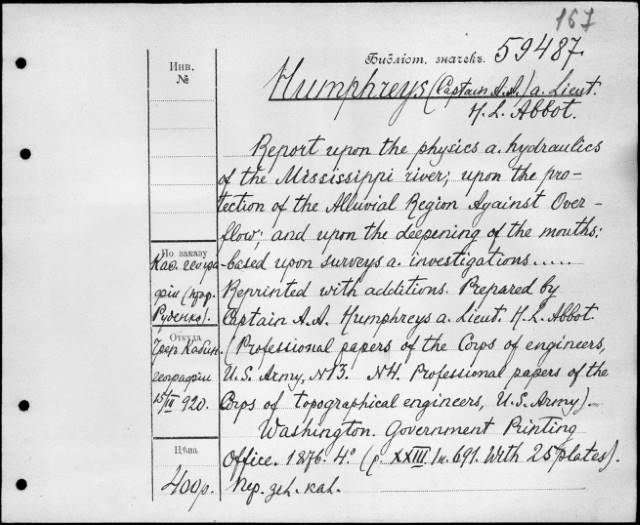 167
Библіот. значекъ. 59487.
Инв.
№
Humphreys (Captain A.A.) a. Lieut.
H. L. Abbot.
Report upon the physics a. hydraulics
of the Mississippi river; upon the pro-
tection of the Alluvial Region Against Over-
flow; and upon the deepening of the mouths:
based upon surveys a. investigations.....
Reprinted with additions. Prepared by
Captain A.A. Humphreys a. Lieut. H. L. Abbot.
(Professional papers of the Corps of engineers,
U.S. Army, N13. N4. Professional papers of the
Corps of topographical engineers, U.S. Army).
Washington. Government Printing
Office. 1876. 4° (p. XXIII In. 691. With 25 plates).
По заказу
Каб. геогра
фіи (проф.
Руденко).
Откуда
географіи
15/III 920.
Цѣна
400р.